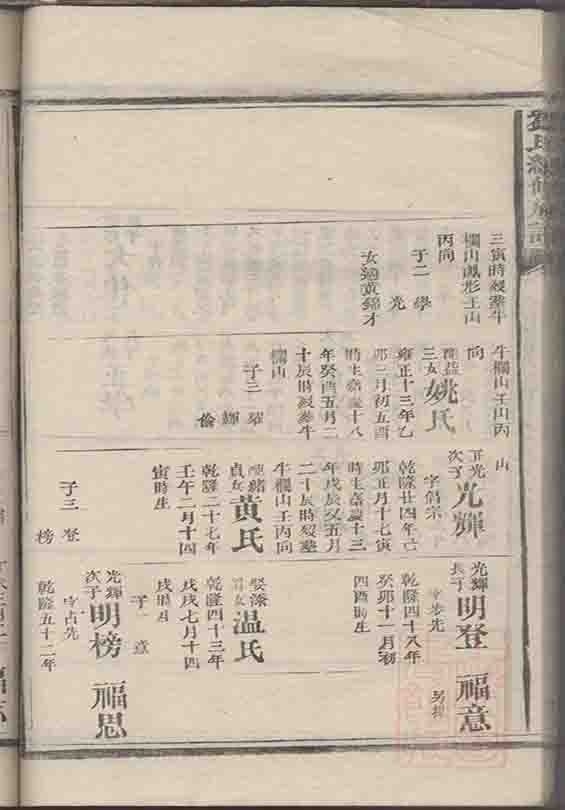 三寅時殁葬牛
欄山鳳形壬山
丙向
子二 學
光
女適黃錦才
牛欄山壬山丙
向
三女姚氏
雍正十三年乙
卯三月初五酉
時生嘉慶十八
年癸酉五月二
十辰時殁葬牛
欄山
子三 耀
輝
倫
山
正光
次子光輝
字倡宗
乾隆廿四年己
卯正月十七寅
時生嘉慶十三
年戊辰又五月
二十辰時殁葬
牛欄山壬丙向
貞女黃氏
乾隆二十七年
壬午二月十四
寅時生
子三 登
榜
光輝
長子明登 福意
乾隆四十八年
癸卯十一月初
四酉時生
娶
女温氏
乾隆四十三年
戊戌七月十四
戌時生
子一 意
光輝
次子明榜 福思
字占先
乾隆五十二年